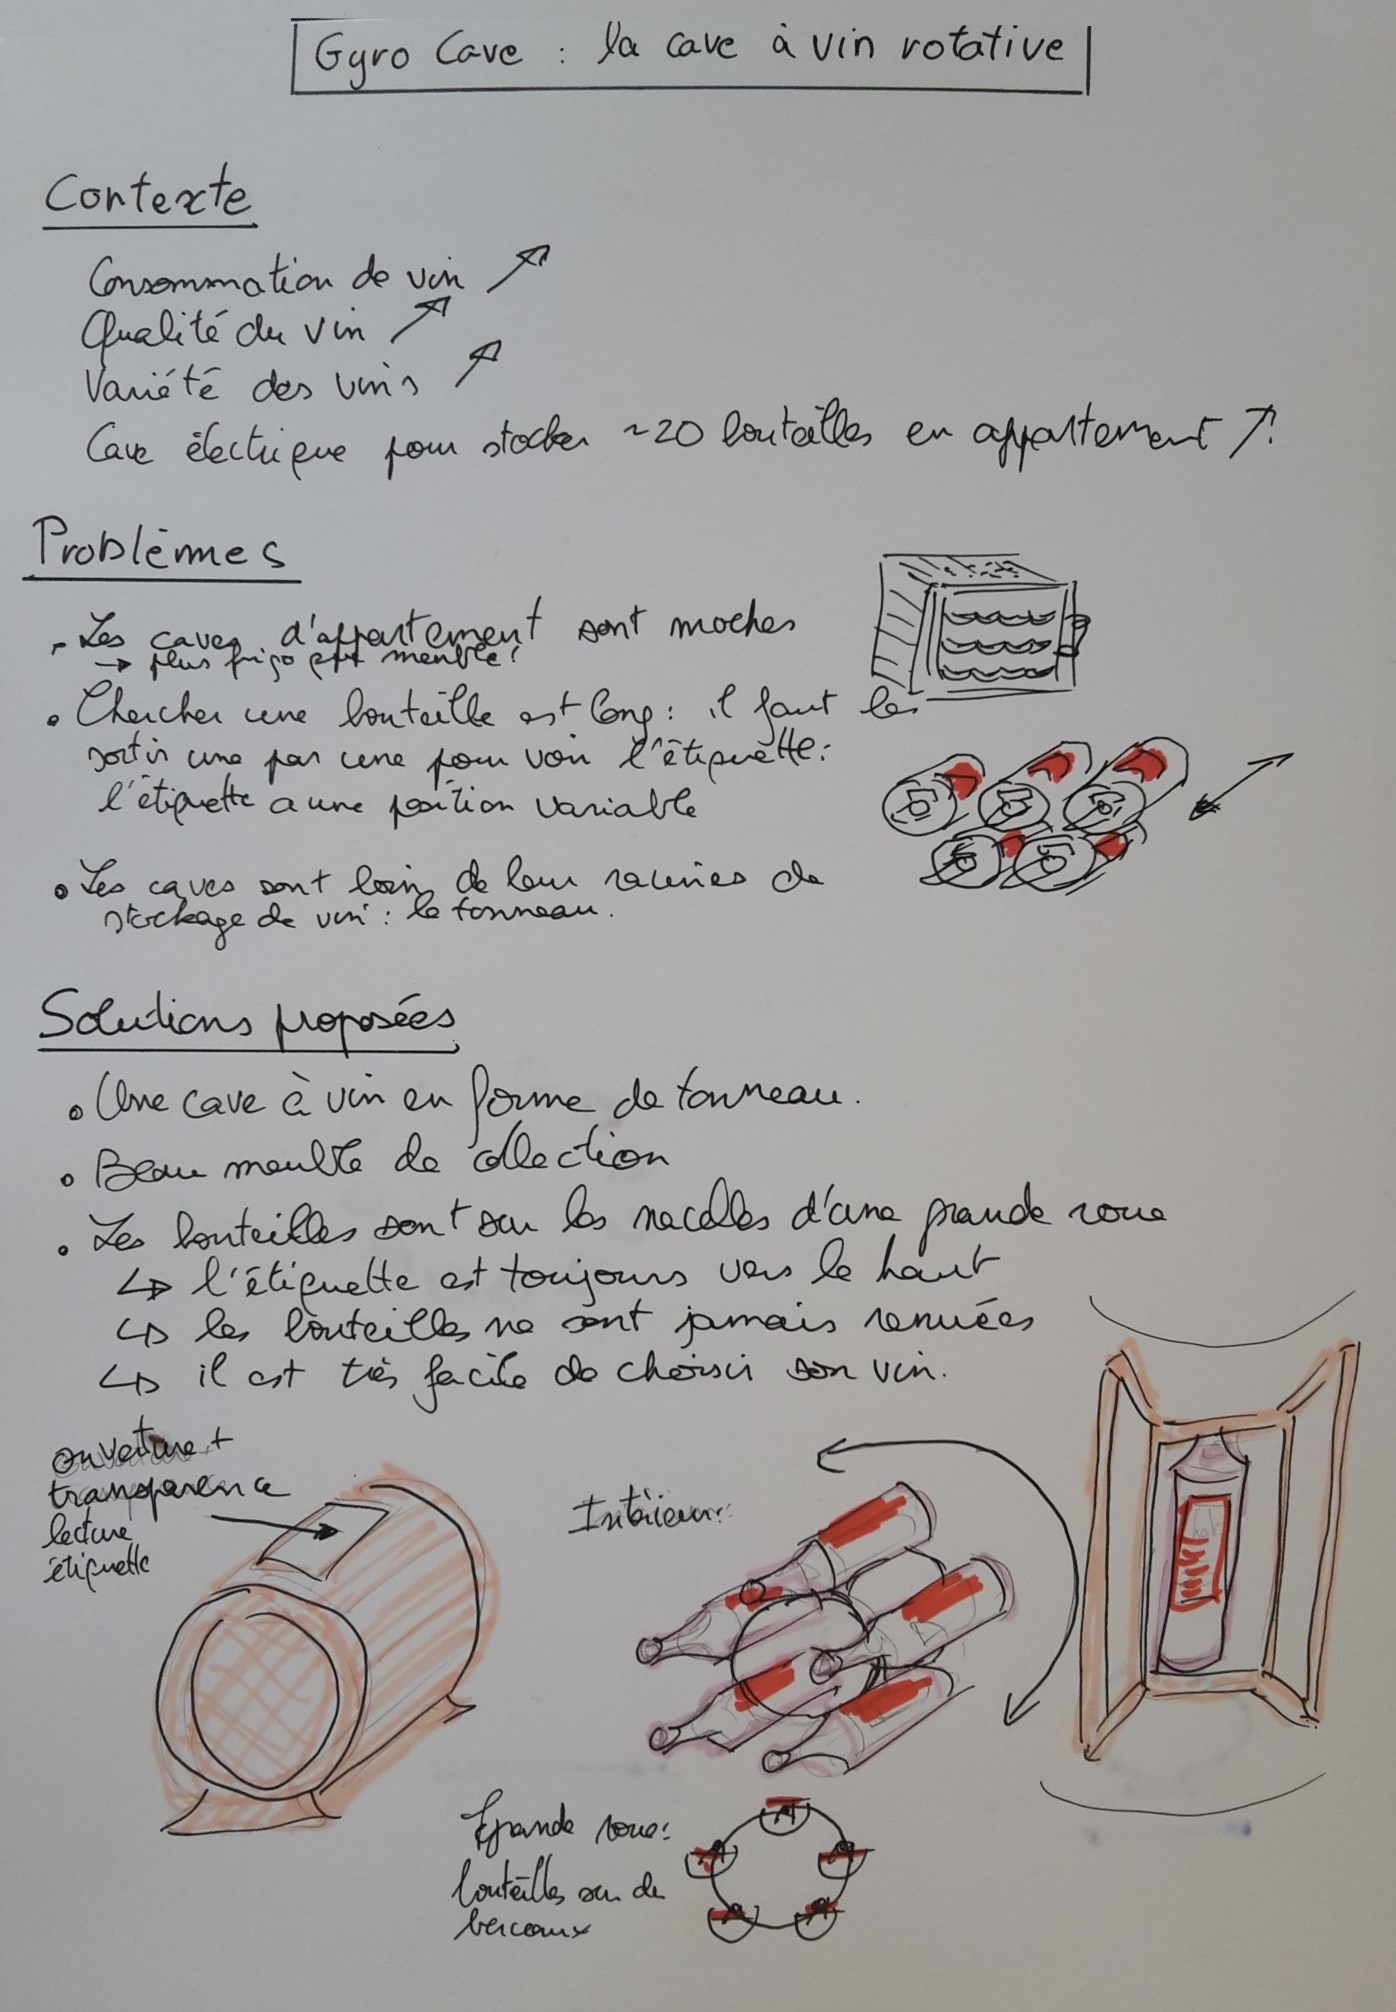 Gyro Cave : la cave à vin rotative
Contexte
Consommation de vin ↗
Qualité du vin ↗
Variété des vins ↗
Cave électrique pour stocker ~20 bouteilles en appartement ↗
Problèmes
- Les caves d'appartement sont moches
→ plus frigo que meuble!
• Chercher une bouteille est long : il faut les
sortir une par une pour voir l'étiquette :
l'étiquette a une position variable
• Les caves sont loin de leur racines de
stockage de vin : le tonneau.
Solutions proposées
• Une cave à vin en forme de tonneau.
• Beau meuble de collection
• Les bouteilles sont sur les nacelles d'une grande roue
↳ l'étiquette est toujours vers le haut
↳ les bouteilles ne sont jamais remuées
↳ il est très facile de choisir son vin.
ouverture +
transparence
lecture
étiquette
Intérieur :
Grande roue :
bouteilles sur de
berceaux